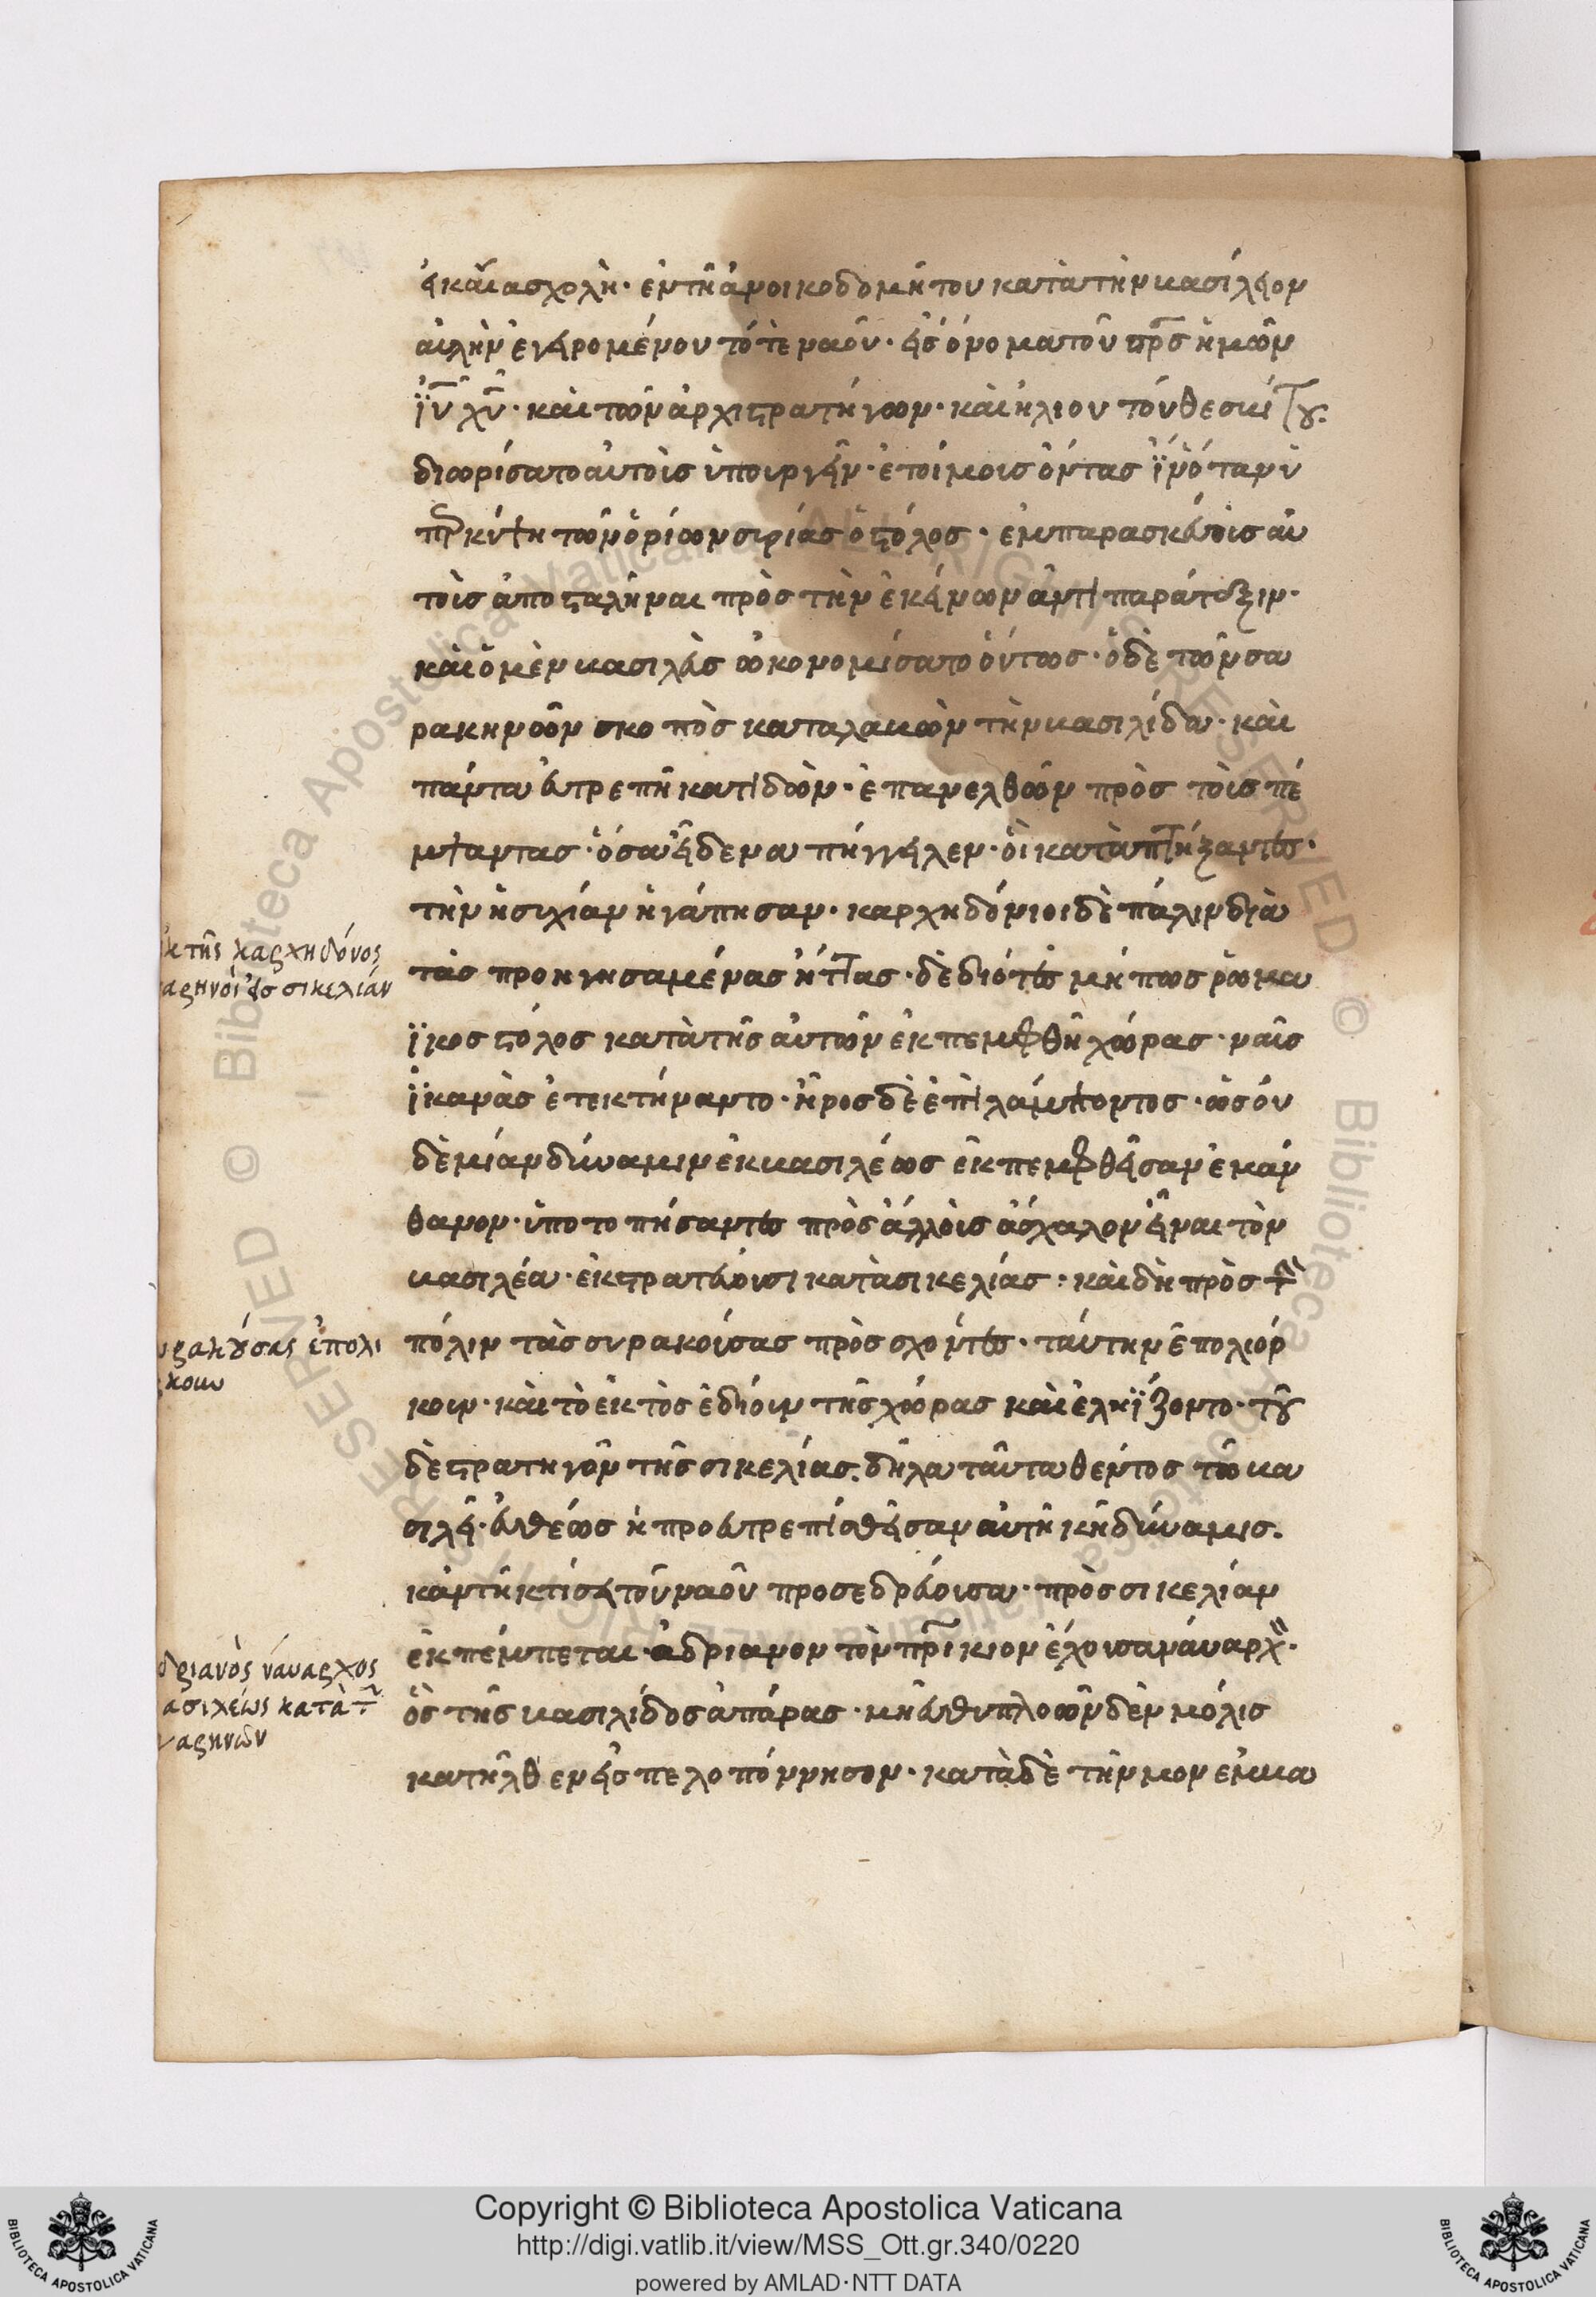 ἐκᾶι ασχολὴ· ἐν τῆ ἀνοικοδομῆ του κατὰ τὴν βασίλειον
αὐλὴν ἐγειρομένου τότε ναοῦ· εἰς ὄνομα τοῦ πρ̅ς ἡμῶν
ϊυ̅ χυ̅· καὶ τῶν ἀρχιστρατήγων· καὶ ηλιου τοῦ θεσβίτου.
διωρίσατο αὐτοὶς ὑπουργεῖν· ἑτοίμους ὄντας ϊν' ὅταν ὑ
περκύψη τῶν ὁρίων συρίας ὁ στόλος· ἐμπαρασκεύοις αὐ
τοὶς ἀποσταλῆναι πρὸς τὴν ἐκείνων ἀντιπαράταξιν·
καὶ ὁ μὲν βασιλεὺς ὠκονομίσατο οὕτως· ὁ δὲ τῶν σα
ρακηνῶν σκοπὸς καταλαβὼν τὴν βασιλίδα· καὶ
πάντα εὐτρεπῆ κατιδὼν· ἐπανελθὼν πρὸς τοὶς πέ
μψαντας· ὅσα εἶδεν απήγγειλεν· οἱ καταπτήξαντες·
τὴν ἡσυχίαν ἠγάπησαν· καρχηδόνιοι δὲ πάλιν διὰ
τὰς προηγησαμένας ἥττας· δεδιότες μή πως ῥωμα
ϊκος στόλος κατὰ τῆς αὐτῶν ἐκπεμφθῆ χώρας· ναῦς
ϊκανὰς ἐτεκτήναντο· ἦρος δὲ ἐπιλάμψοντος· ὡς οὐ
δεμίαν δύναμιν ἐκ βασιλέως ἐκπεμφθεῖσαν ἐμάν
θανον· ὑποτοπήσαντες πρὸς ἄλλοις ἀσχαλον εἶναι τὸν
βασιλέα· ἐκστρατεύουσι κατὰ σικελίας: καὶ δὴ πρὸς τὴν
πόλιν τὰς συρακούσας πρὸσ σχοντες· ταύτην ἐπολιόρ
κουν· καὶ τὸ ἐκτὸς ἐδῄουν τῆς χώρας καὶ ἐληΐζοντο· τοῦ
δὲ στρατηγοῦ τῆς σικελίας. δῆλα ταῦτα θέντος τῶ βα
σιλεῖ· εὐθέως ἡ προευτρεπισθεῖσαν αὐτῆ κῆ δύναμις.
κἀν τῆ κτίσει τοῦ ναοῦ προσεδρεύουσα· πρὸς σικελίαν
ἐκπέμπεται· ἀδριανον τὸν πρ̅ικιον ἔχουσα ναύαρχον·
ὃς τῆς βασιλίδος ἀπάρας· μὴ εὐθυπλοῶν δὲν μόλις
κατῆλθεν εἰς πελοπόννησον· κατὰ δὲ τὴν μονεμβα
κ τῆς καρχηδόνος
αρηνοὶ εἰς σικελίαν
υρακούσας ἐπολι
ρκουν
δριανὸς ναύαρχος
ασιλέως κατὰ τ
ναρηνῶν
Copyright © Biblioteca Apostolica Vaticana
http://digi.vatlib.it/view/MSS_Ott.gr.340/0220
powered by AMLAD·NTT DATA
BIBLIOTECA APOSTOLICA VATICANA
BIBLIOTECA APOSTOLICA VATICANA